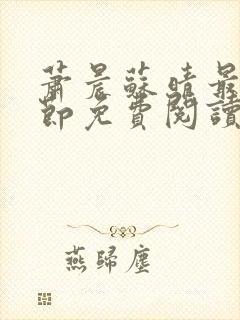 蕭晨蘇晴最
節免費閱讀
燕歸塵